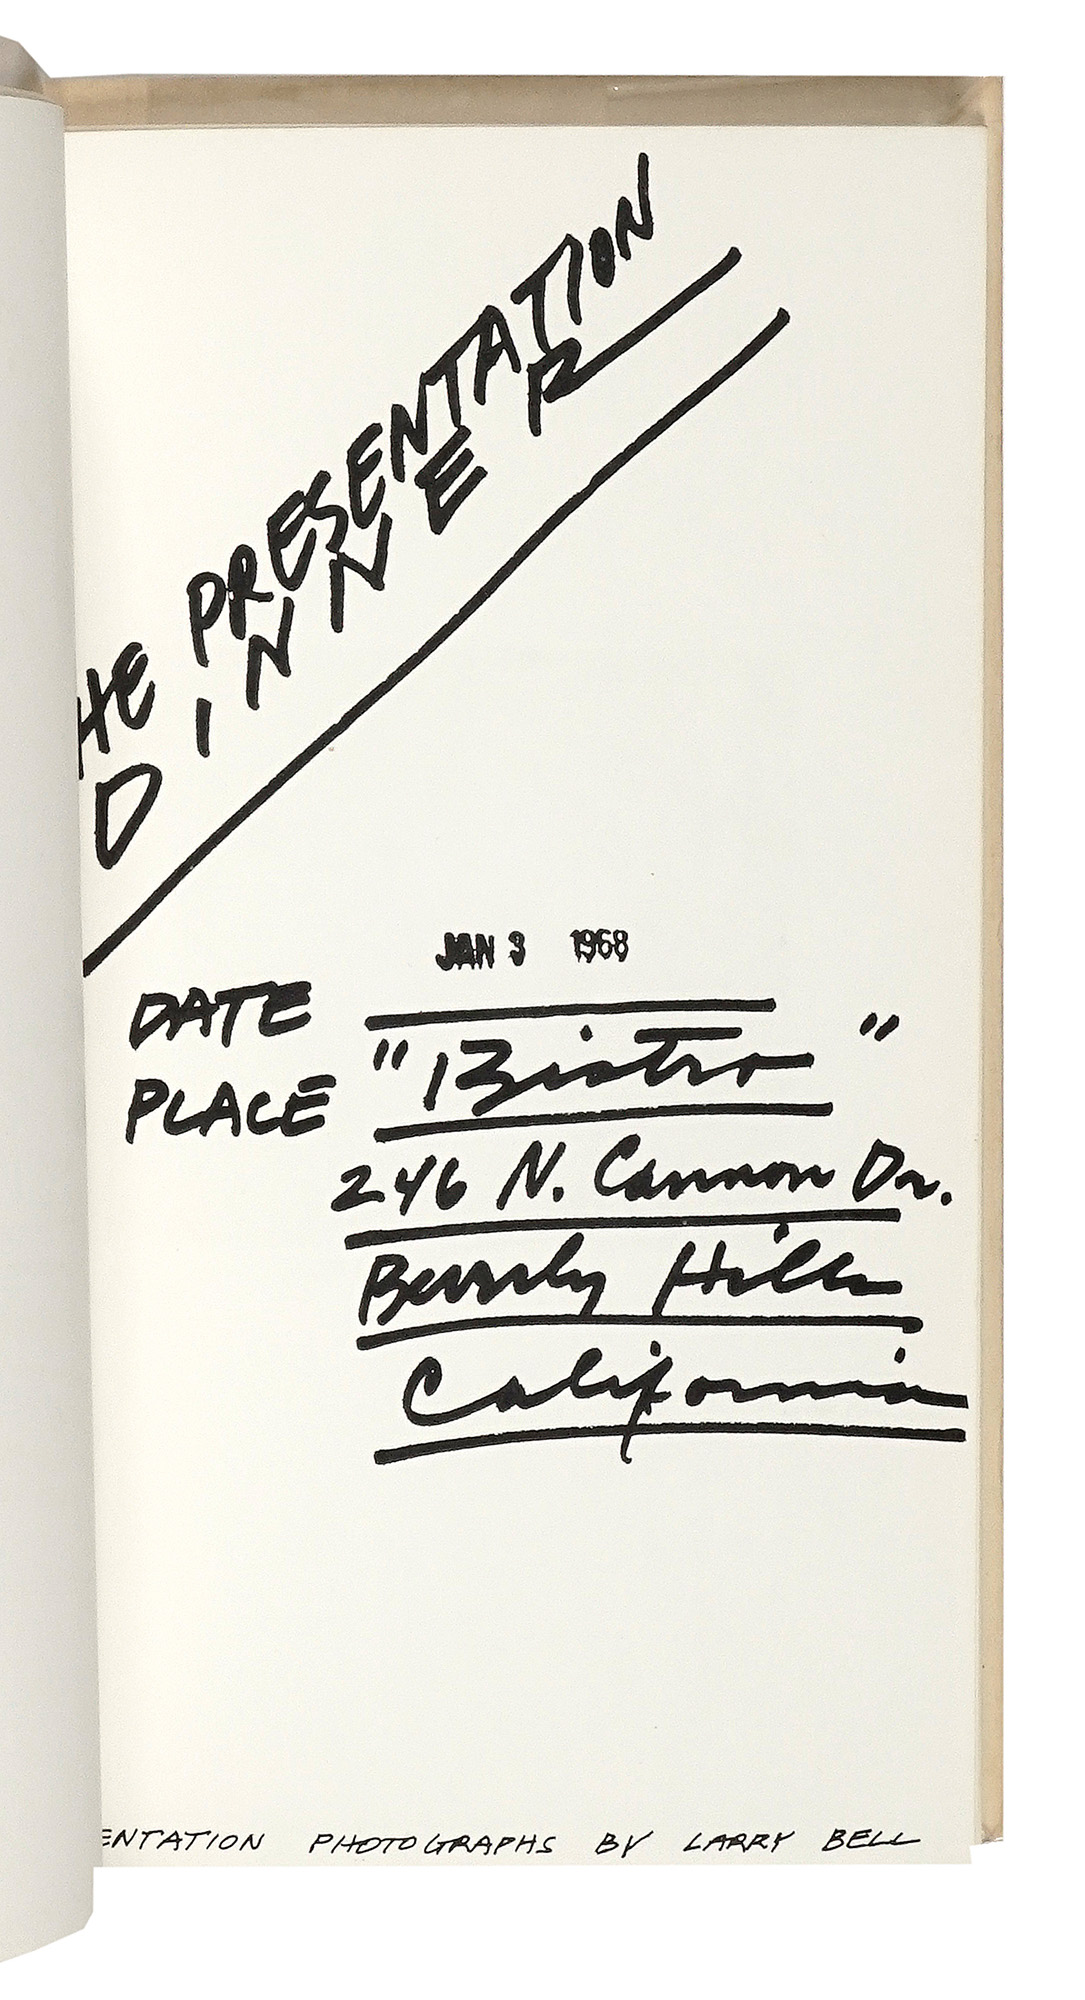 HE PRESENTATION
DINNER
JAN 3 1968
DATE
PLACE "Bistro"
246 N. Cannon Dr.
Beverly Hills
California
ENTATION PHOTOGRAPHS BY LARRY BELL